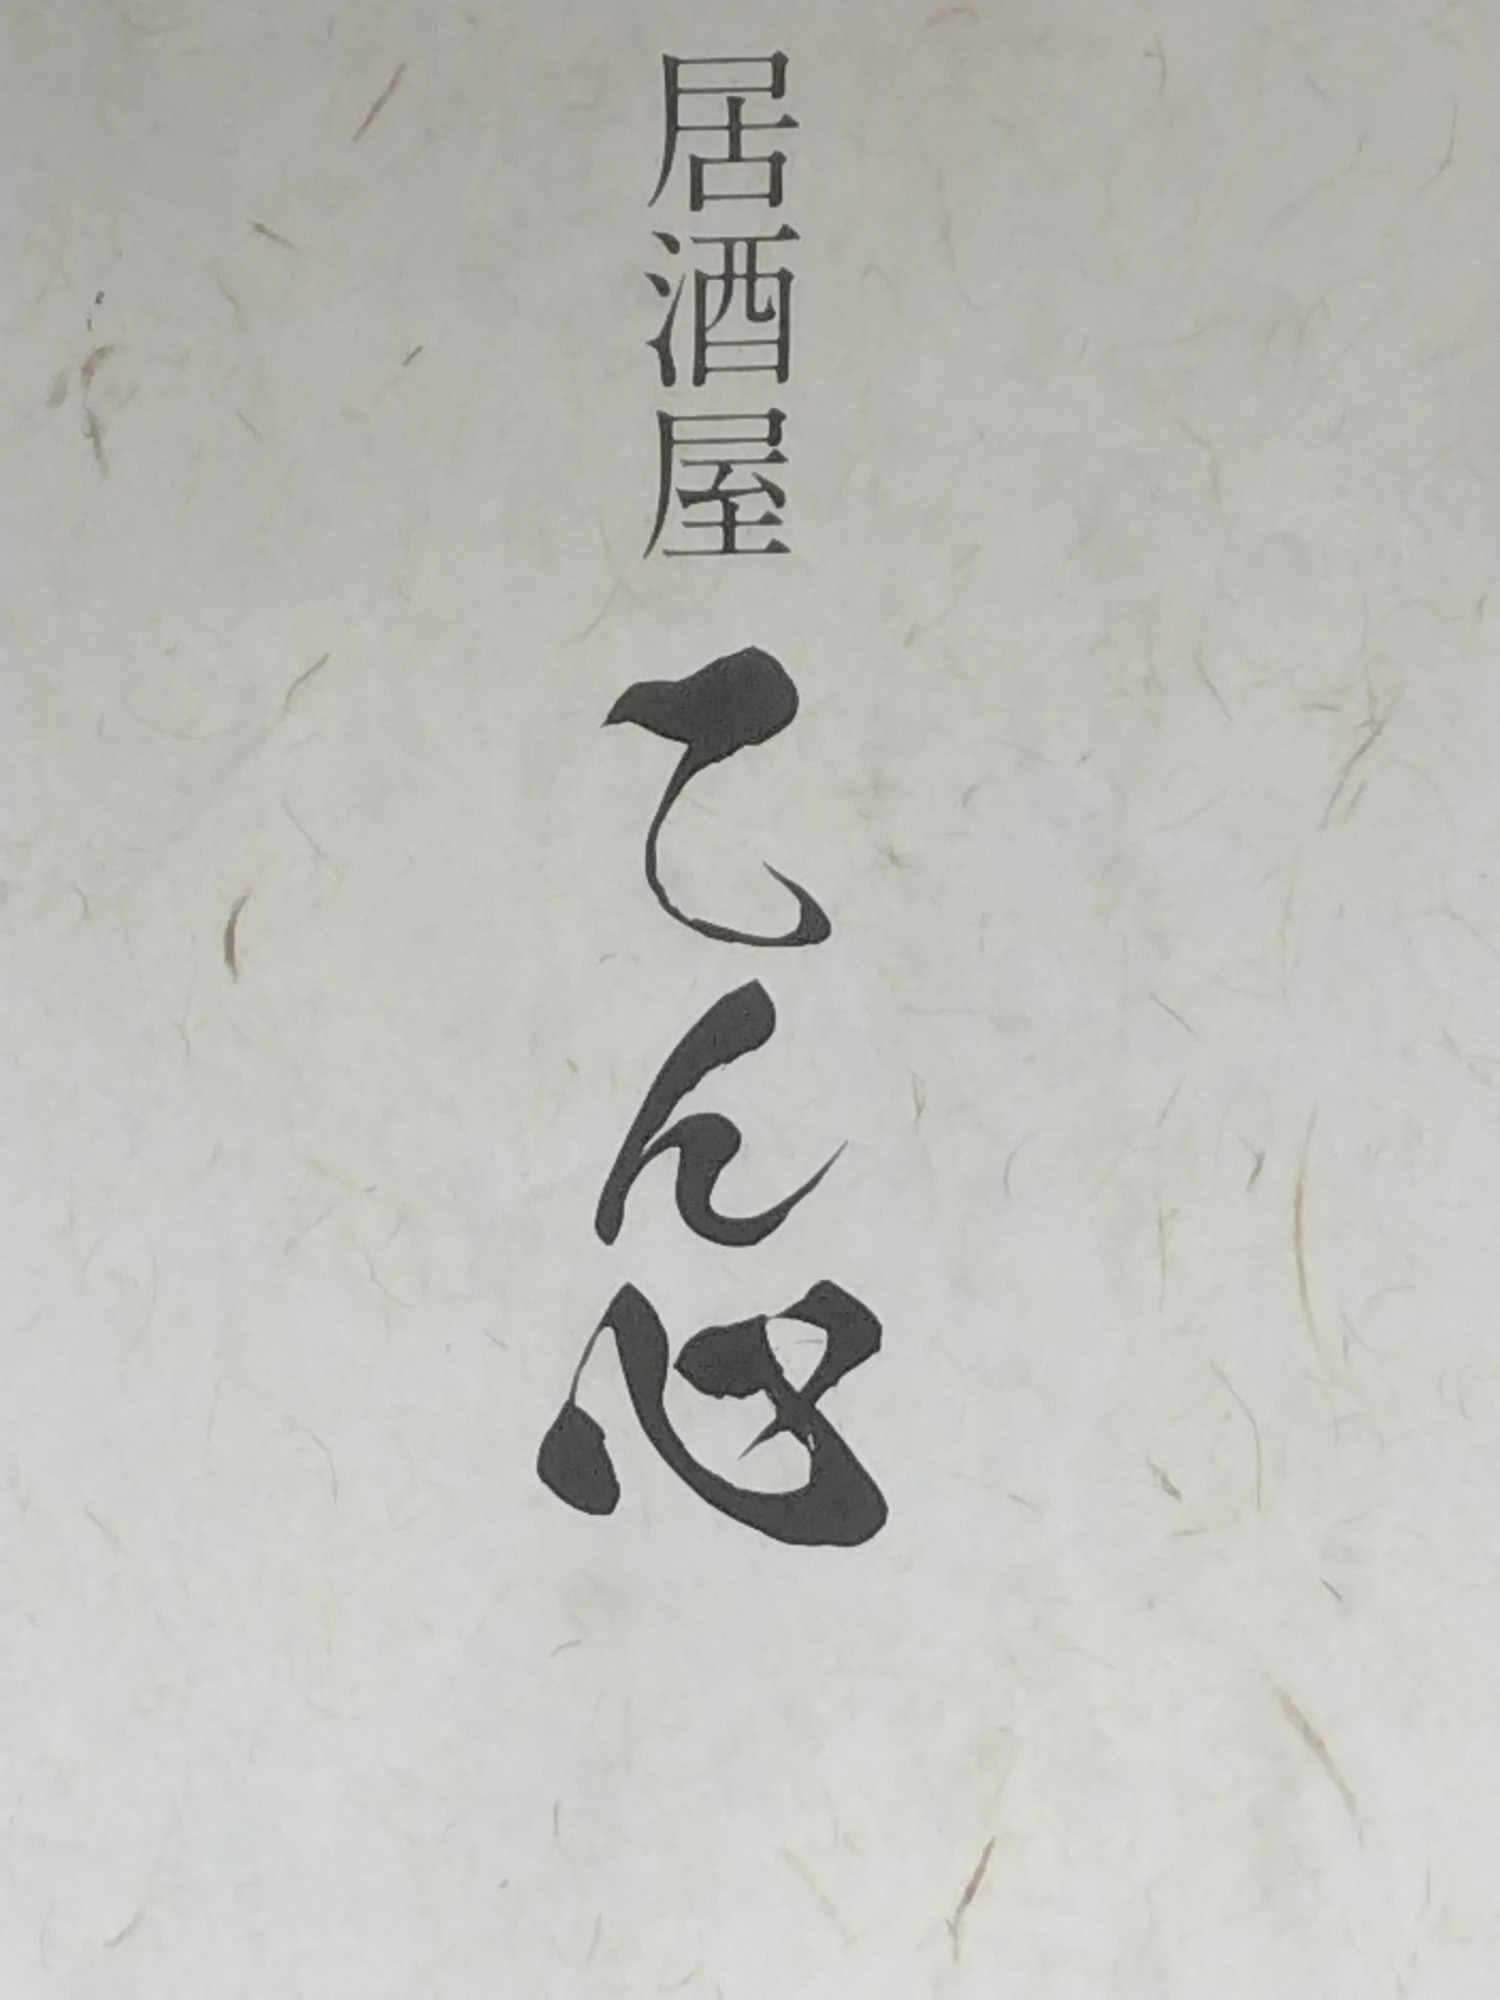 居酒屋 てん心